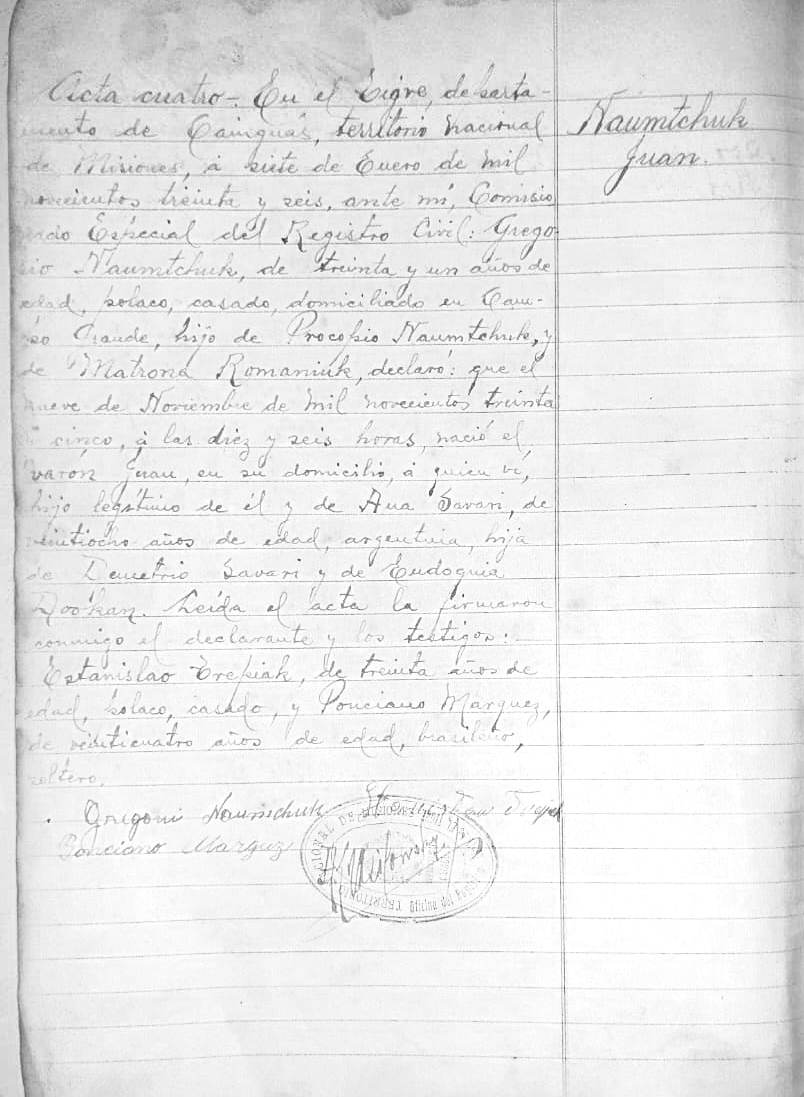 Acta cuatro-. En el Tigre, departa-
mento de Cainguás, territorio nacional
de Misiones, á siete de Enero de mil
novecientos treinta y seis, ante mí, Comisio
nado Especial del Registro Civil: Grego-
rio Naumtchuk, de treinta y un años de
edad, polaco, casado, domiciliado en Cam-
po Grande, hijo de Procopio Naumtchuk, y
de Matrona Romaniuk, declaró: que el
nueve de Noviembre de mil novecientos treinta
y cinco, á las diez y seis horas, nació el
varón Juan, en su domicilio, á quien ví,
hijo legítimo de él y de Ana Savari, de
veintiocho años de edad, argentina, hija
de Demetrio Savari y de Eudoquia
Dookan. Leída el acta la firmaron
conmigo el declarante y los testigos:
Estanislao Trepiak, de treinta años de
edad, polaco, casado, y Ponciano Márquez,
de veinticuatro años de edad, brasileño,
soltero.
Gregoni Naumchuk
Ponciano Marquez
Naumtchuk
Juan.